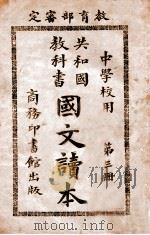 教育部審定
中學校用
共和國
教科書
國文讀本
第三冊
商務印書館出版